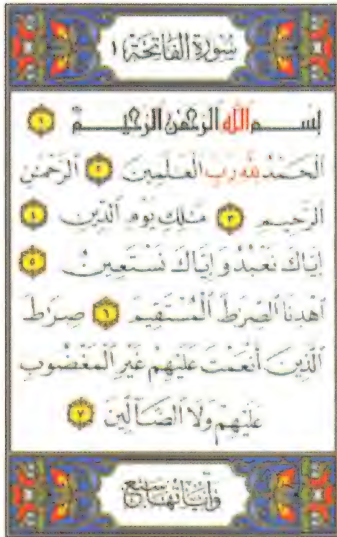 سُورَةُ الفَاتِحَةِ ١
بِسْمِ اللَّهِ الرَّحْمَٰنِ الرَّحِيمِ ١
الْحَمْدُ لِلَّهِ رَبِّ الْعَٰلَمِينَ ٢ الرَّحْمَٰنِ
الرَّحِيمِ ٣ مَٰلِكِ يَوْمِ الدِّينِ ٤
إِيَّاكَ نَعْبُدُ وَإِيَّاكَ نَسْتَعِينُ ٥
ٱهْدِنَا ٱلصِّرَٰطَ ٱلْمُسْتَقِيمَ ٦ صِرَٰطَ
ٱلَّذِينَ أَنْعَمْتَ عَلَيْهِمْ غَيْرِ ٱلْمَغْضُوبِ
عَلَيْهِمْ وَلَا ٱلضَّآلِّينَ ٧
وَآيَاتُهَا سَبْعٌ